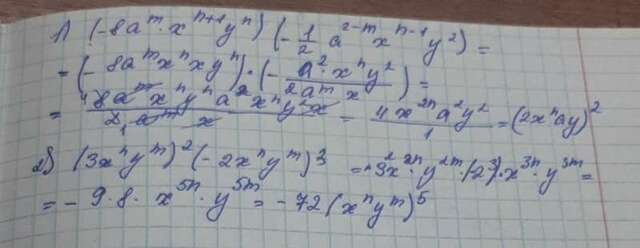 1) (-8a^m · x^{n+1} y^n) (-1/2 a^{2-m} x^{n-1} y^2) =
= (-8a^m x^n x y^n) · (- a^2 · x^n y^2 / 2a^m x) =
= 4 8a^m x^n y^n a^2 x^n y^2 x / 2 1 a^m x = 4x^{2n} a^2 y^2 / 1 = (2x^n ay)^2
2) (3x^n y^m)^2 (-2x^n y^m)^3 = 3^2 x^{2n} · y^{2m} · (-2^3) · x^{3n} · y^{3m} =
= -9 · 8 · x^{5n} · y^{5m} = -72 (x^n y^m)^5